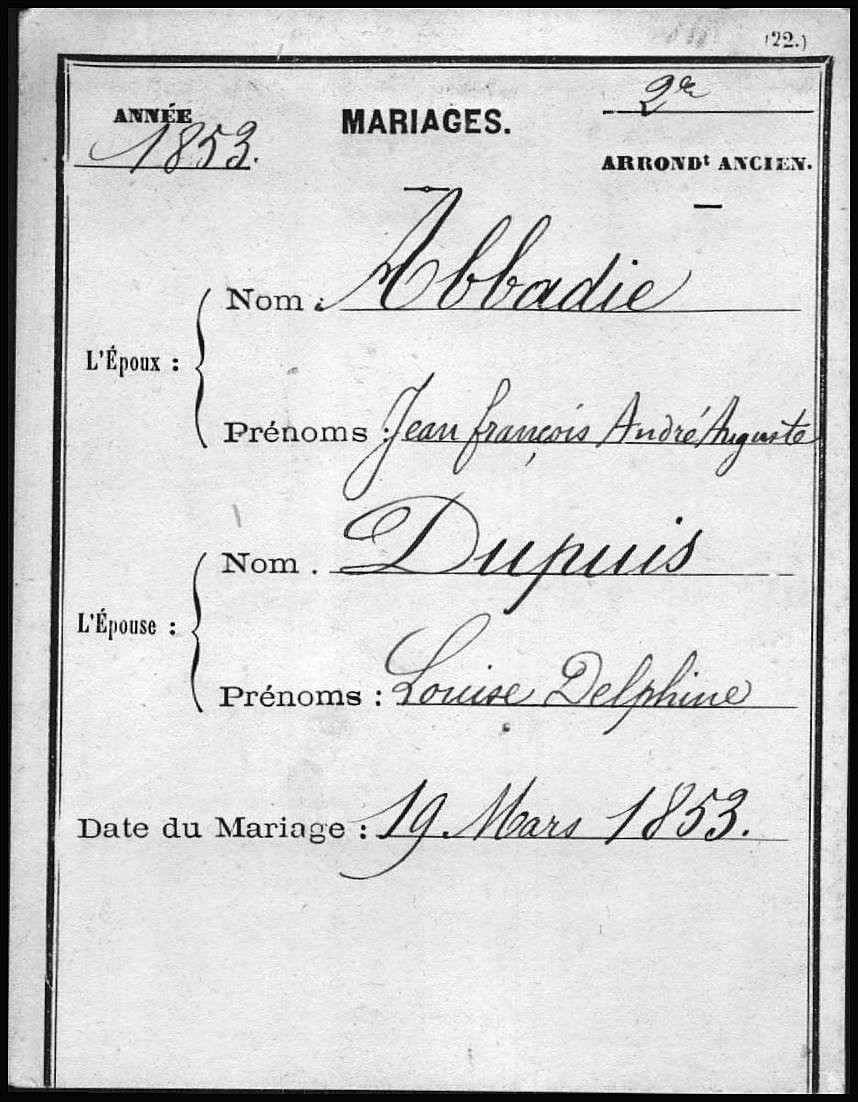 (22.)
ANNÉE 1853.
MARIAGES.
2e
ARRONDt ANCIEN.
L'Époux :
Nom : Abbadie
Prénoms : Jean François André Auguste
L'Épouse :
Nom . Dupuis
Prénoms : Louise Delphine
Date du Mariage : 19 Mars 1853.